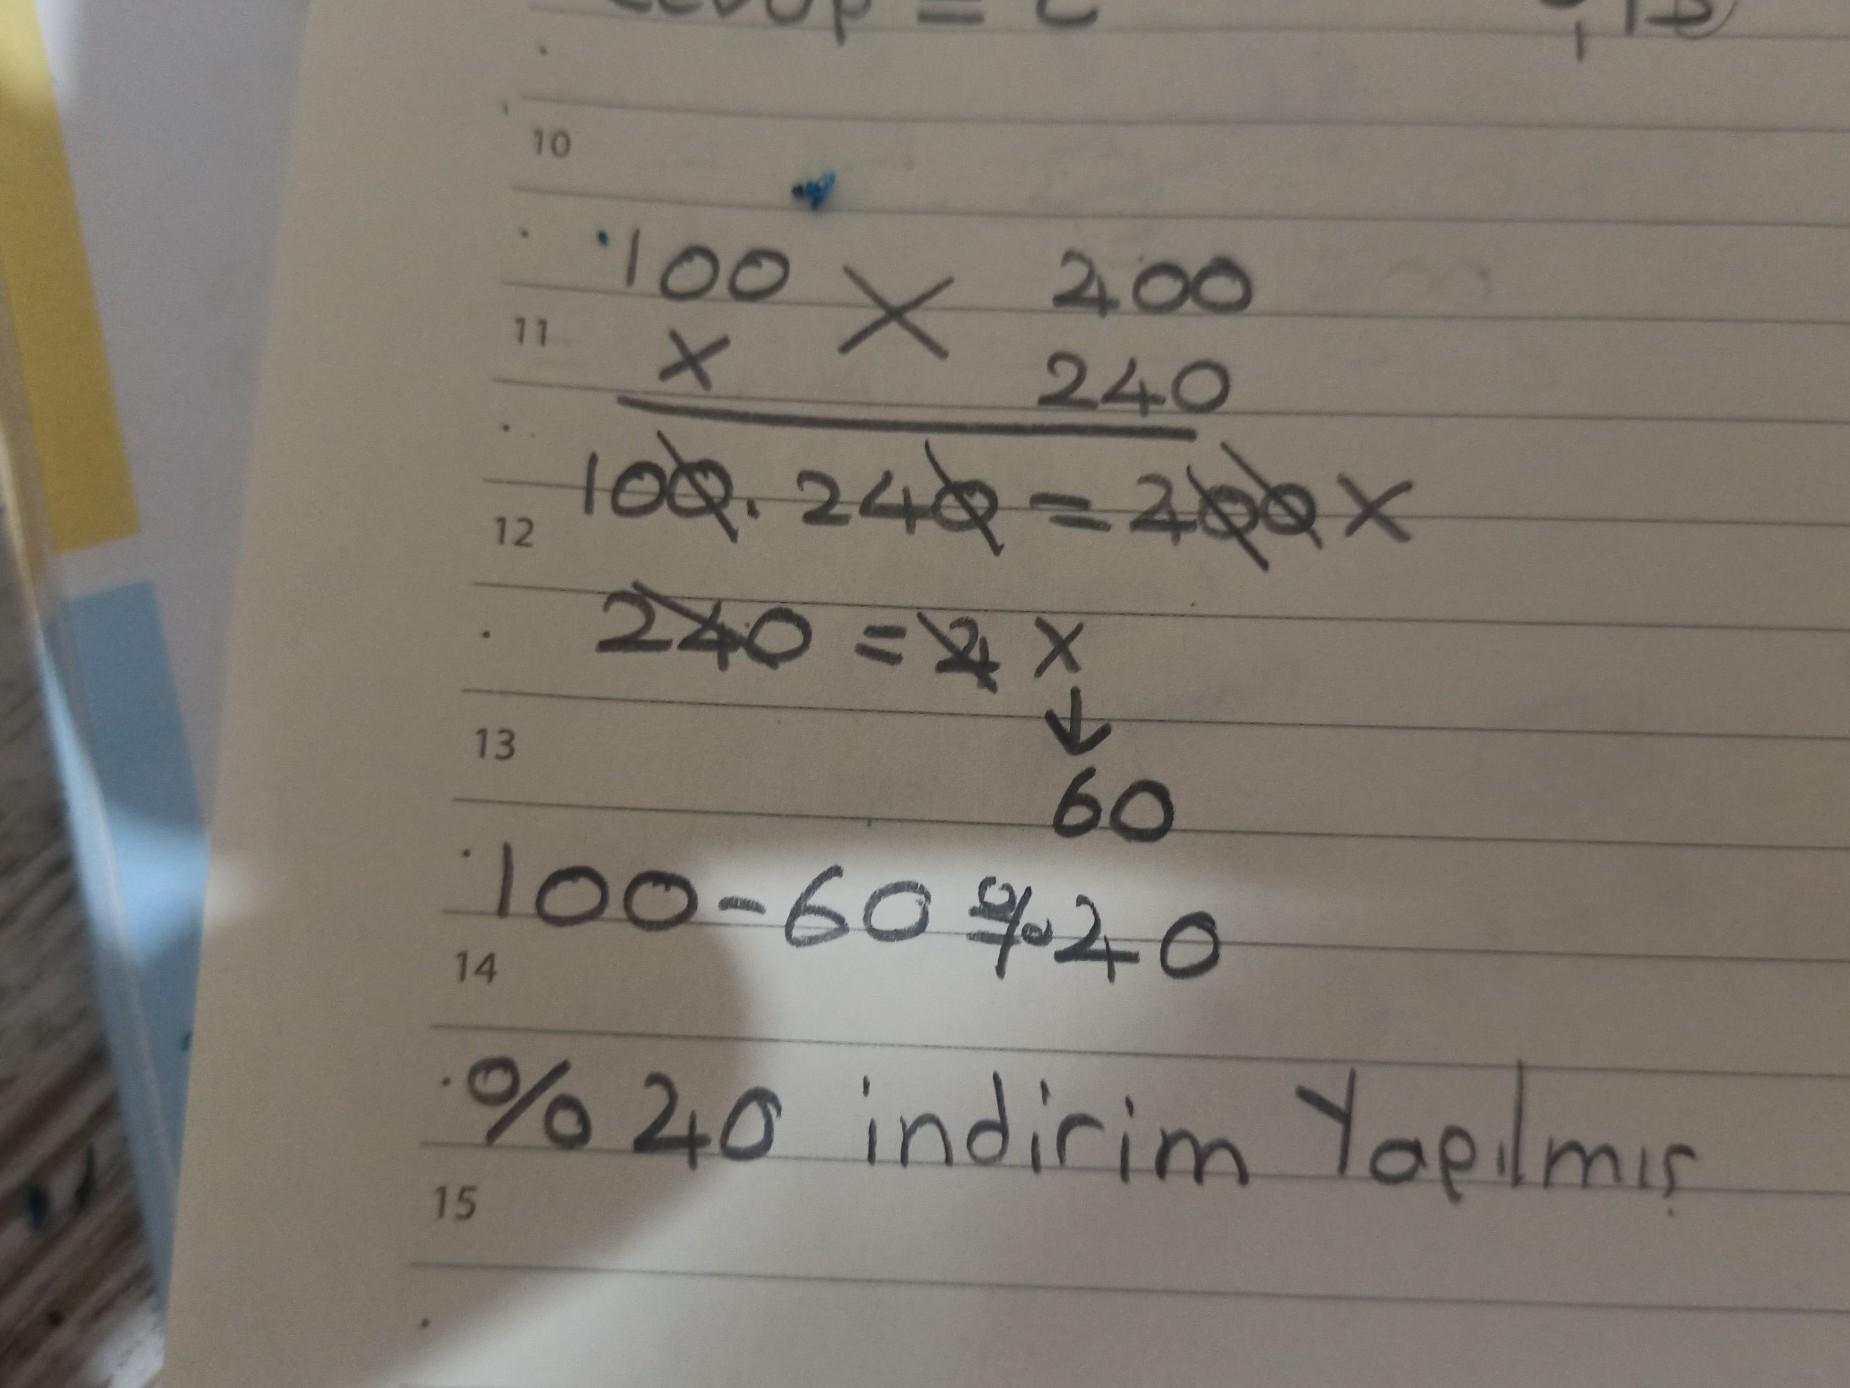 Cevap = C
10
100 X 400
11
X 240
100 . 240 = 400 X
12
240 = 4 X
↓
13
60
100 - 60 = %40
14
%40 indirim Yapılmış
15